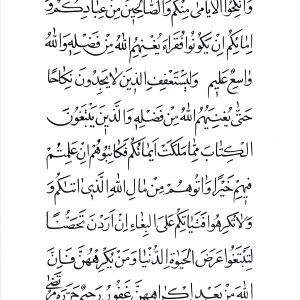 وانكحوا الايامى منكم والصالحين من عبادكم و
امائكم ان يكونوا فقراء يغنيهم الله من فضله والله
واسع عليم وليستعفف الذين لا يجدون نكاحا
حتى يغنيهم الله من فضله والذين يبتغون
الكتاب مما ملكت ايمانكم فكاتبوهم ان علمتم
فيهم خيرا واتوهم من مال الله الذي اتاكم و
ولا تكرهوا فتياتكم على البغاء ان اردن تحصنا
لتبتغوا عرض الحيوة الدنيا ومن يكرههن فان
الله من بعد اكراههن غفور رحيم